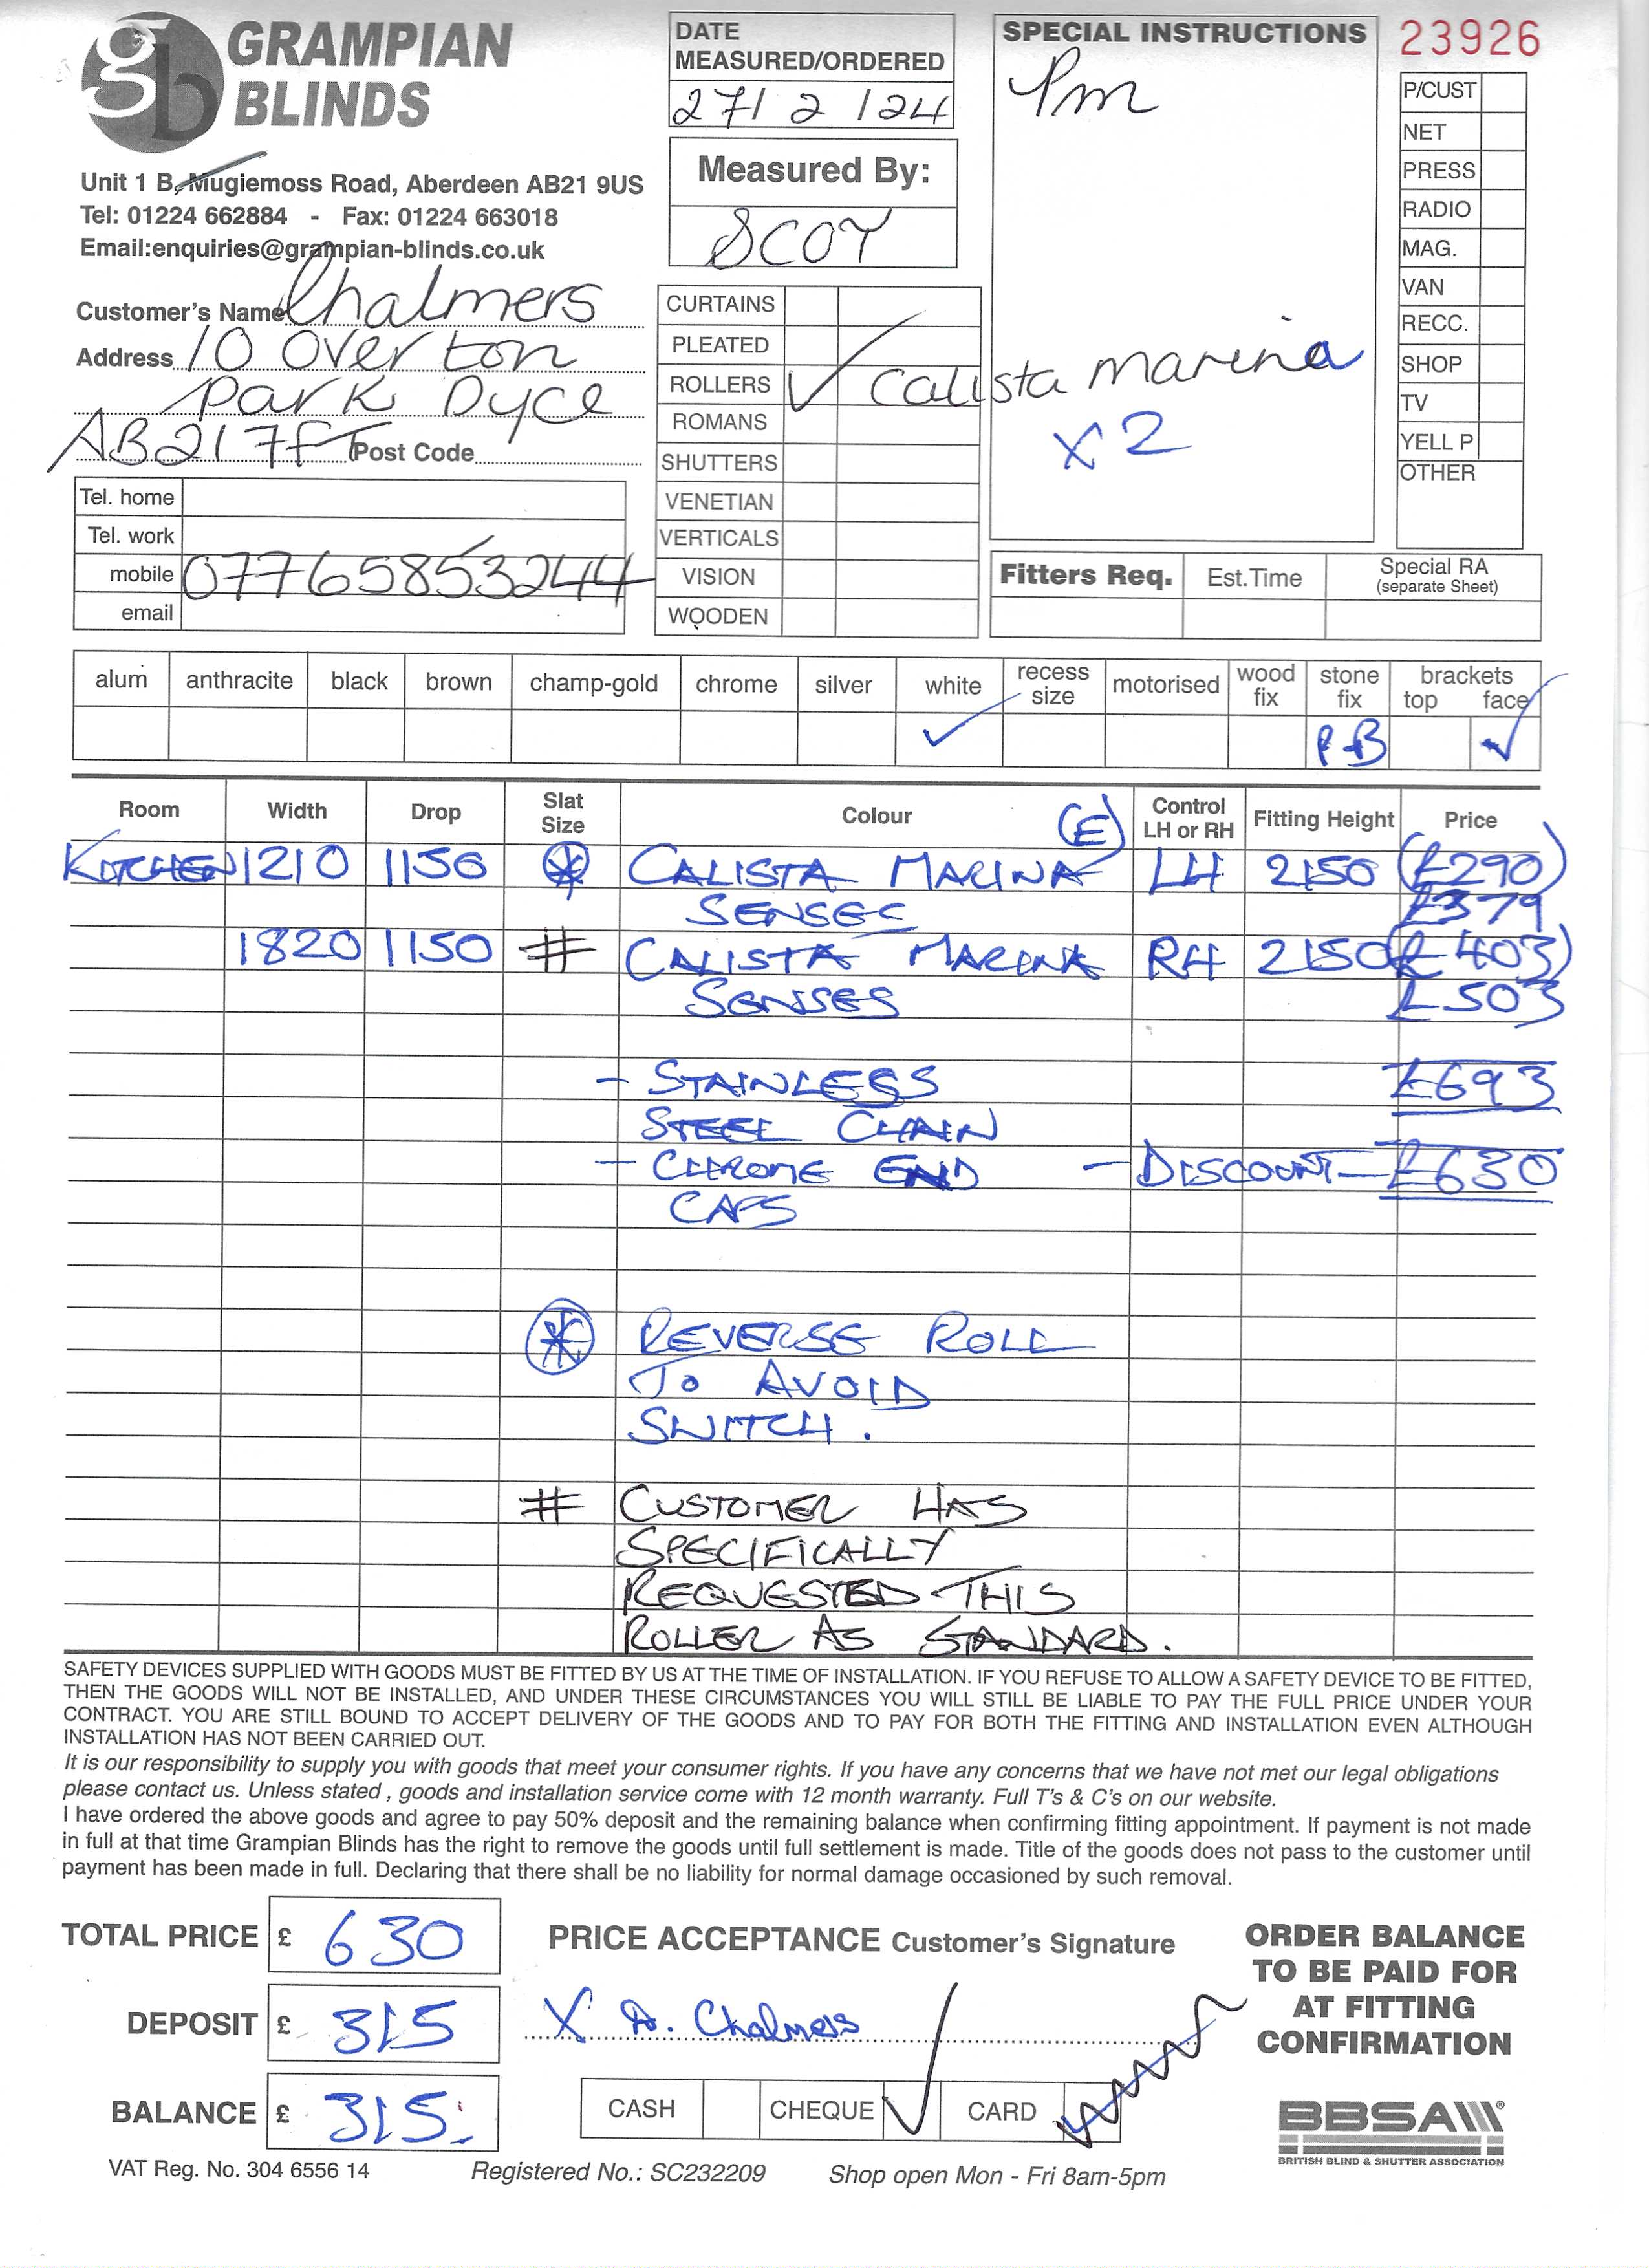 gb GRAMPIAN
BLINDS
Unit 1 B, Mugiemoss Road, Aberdeen AB21 9US
Tel: 01224 662884 - Fax: 01224 663018
Email:enquiries@grampian-blinds.co.uk
Customer's Name Chalmers
Address 10 Overton
Park Dyce
AB21 7FT Post Code
Tel. home
Tel. work
mobile 07765853244
email
DATE
MEASURED/ORDERED
27/2/24
Measured By:
SCOT
CURTAINS
PLEATED
ROLLERS ✓ Calista marina
x2
ROMANS
SHUTTERS
VENETIAN
VERTICALS
VISION
WOODEN
SPECIAL INSTRUCTIONS
Pm
23926
P/CUST
NET
PRESS
RADIO
MAG.
VAN
RECC.
SHOP
TV
YELL P
OTHER
Fitters Req. Est.Time Special RA
(separate Sheet)
alum anthracite black brown champ-gold chrome silver white recess size motorised wood fix stone fix brackets top face
✓ PB ✓
Room Width Drop Slat Size Colour (E) Control LH or RH Fitting Height Price
KITCHEN 1210 1150 * CALISTA MARINA LH 2150 (£290)
SENSES £379
1820 1150 # CALISTA MARINA RH 2150 (£403)
SENSES £503
- STAINLESS £693
STEEL CHAIN
- CHROME END - DISCOUNT - £630
CAPS
* REVERSE ROLL
TO AVOID
SWITCH.
# CUSTOMER HAS
SPECIFICALLY
REQUESTED THIS
ROLLER AS STANDARD.
SAFETY DEVICES SUPPLIED WITH GOODS MUST BE FITTED BY US AT THE TIME OF INSTALLATION. IF YOU REFUSE TO ALLOW A SAFETY DEVICE TO BE FITTED,
THEN THE GOODS WILL NOT BE INSTALLED, AND UNDER THESE CIRCUMSTANCES YOU WILL STILL BE LIABLE TO PAY THE FULL PRICE UNDER YOUR
CONTRACT. YOU ARE STILL BOUND TO ACCEPT DELIVERY OF THE GOODS AND TO PAY FOR BOTH THE FITTING AND INSTALLATION EVEN ALTHOUGH
INSTALLATION HAS NOT BEEN CARRIED OUT.
It is our responsibility to supply you with goods that meet your consumer rights. If you have any concerns that we have not met our legal obligations
please contact us. Unless stated , goods and installation service come with 12 month warranty. Full T's & C's on our website.
I have ordered the above goods and agree to pay 50% deposit and the remaining balance when confirming fitting appointment. If payment is not made
in full at that time Grampian Blinds has the right to remove the goods until full settlement is made. Title of the goods does not pass to the customer until
payment has been made in full. Declaring that there shall be no liability for normal damage occasioned by such removal.
TOTAL PRICE £ 630
DEPOSIT £ 315
BALANCE £ 315.
PRICE ACCEPTANCE Customer's Signature
X D. Chalmers
CASH CHEQUE ✓ CARD
ORDER BALANCE
TO BE PAID FOR
AT FITTING
CONFIRMATION
BBSA®
BRITISH BLIND & SHUTTER ASSOCIATION
VAT Reg. No. 304 6556 14 Registered No.: SC232209 Shop open Mon - Fri 8am-5pm